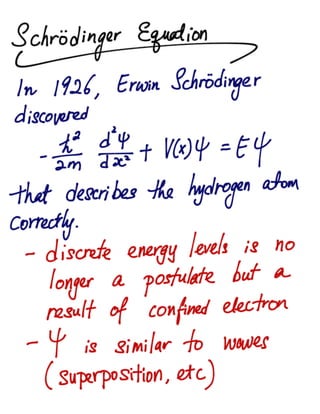 Schrödinger Equation
In 1926, Erwin Schrödinger
discovered
-ħ²/2m d²ψ/dx² + V(x)ψ = Eψ
that describes the hydrogen atom
correctly.
- discrete energy levels is no
longer a postulate but a
result of confined electron
- ψ is similar to waves
(superposition, etc)